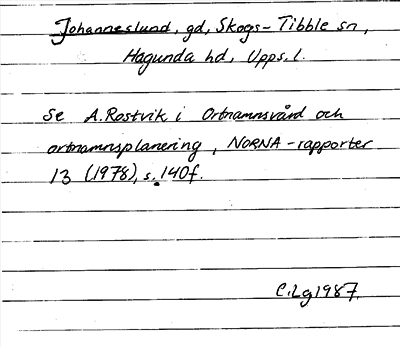 Johanneslund, gd, Skogs-Tibble sn,
Hagunda hd, Upps.l.
Se A.Rostvik i Ortnamnsvård och
ortnamnsplanering, NORNA-rapporter
13 (1978), s. 140f.
C.Lg 1987.